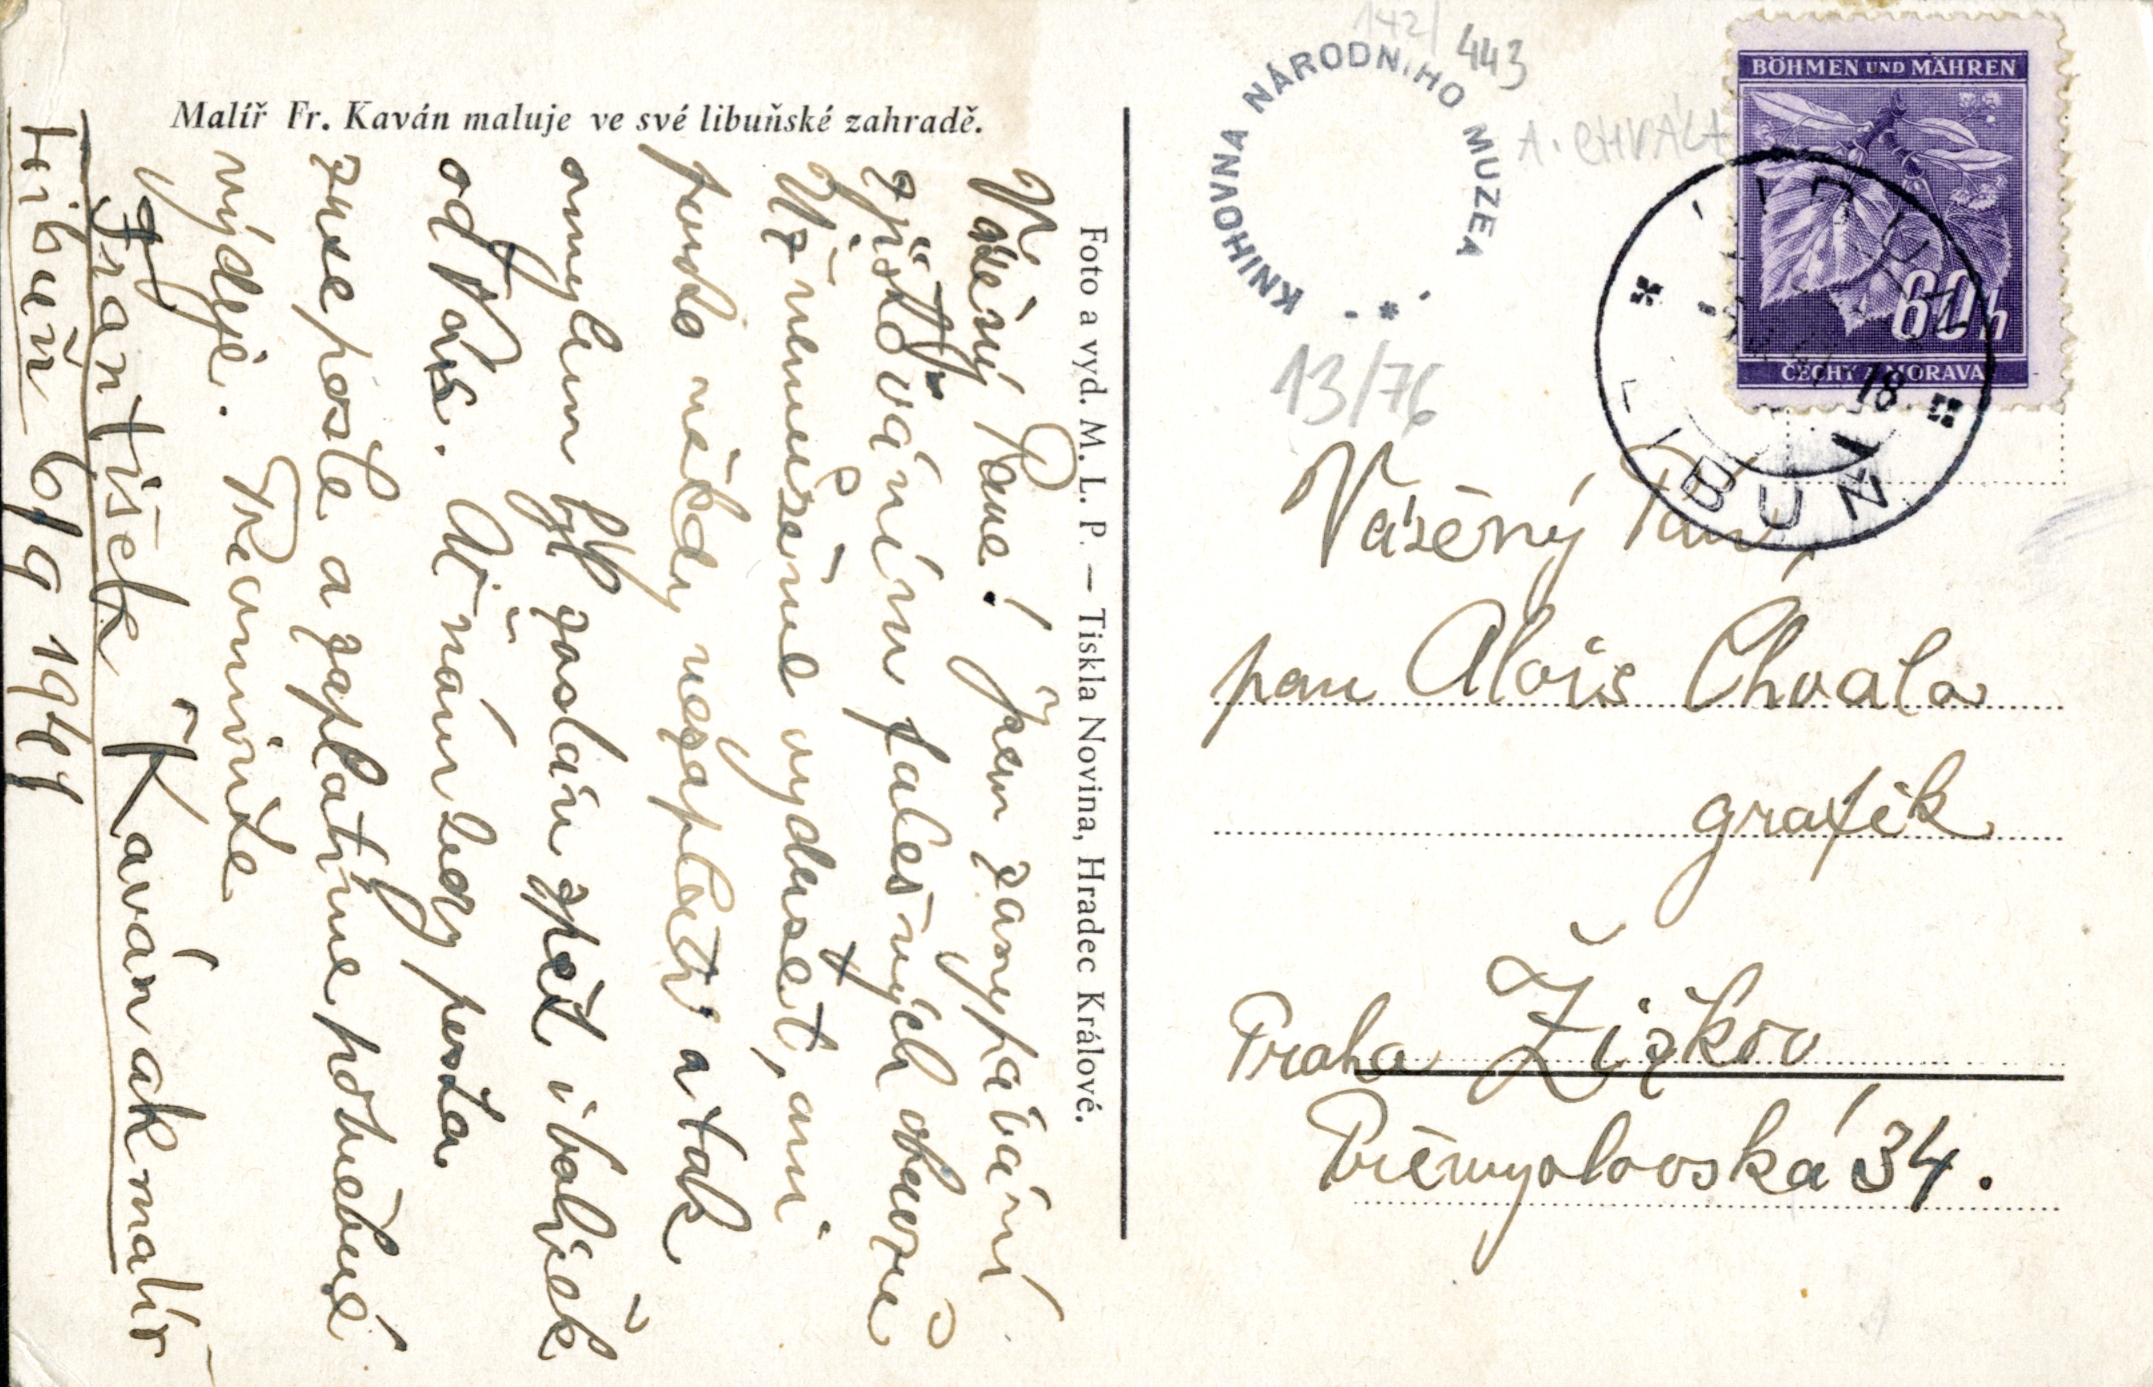 Malíř Fr. Kaván maluje ve své libuňské zahradě.
Vážený Pane! jsem zanepráděn
zjišťováním falešných obrazů
Už nemůžeme vydržet, ani
omylem byl poslán zpět i balíček
od Vás. Ať nám tedy pošta
zase pošle a zaplatíme potřebné
výdeje. Promiňte
František Kaván ak malíř
Libuň 6/9 1941
Foto a vyd. M. L. P. — Tiskla Novina, Hradec Králové.
KNIHOVNA NÁRODNÍHO MUZEA
142/443
A. CHVÁLA
13/76
BÖHMEN UND MÄHREN
60h
ČECHY A MORAVA
LIBUŇ
18
Vážený Pan,
pan Alois Chvala
grafik
Praha Žižkov
Přemyslovská 34.